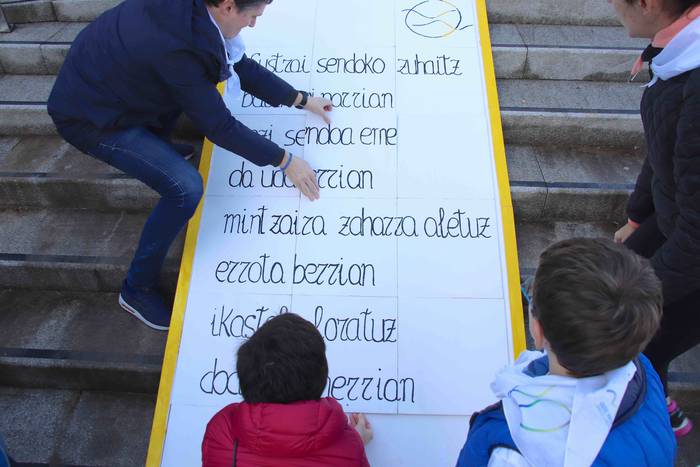 Sustrai sendoko zuhaitz
harrian
sendoa erne
da udaberrian
mintzaira zaharra aletuz
errota berrian
ikastola loratuz
herrian